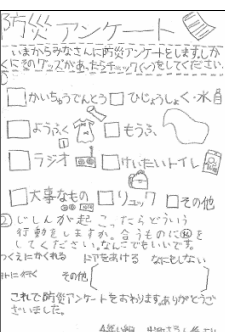 防災アンケート
いまからみなさんに防災アンケートをします。しか
くにそのグッズがあったらチェック(✓)をしてください。
□かいちゅうでんとう □ひじょうしょく・水
□ようふく □もうふ
□ラジオ □けいたいトイレ
□大事なもの □リュック □その他
② じしんが起こったらどういう
行動をしますか。合うものに○を
してください。なんこでもいいです。
つくえにかくれる ドアをあける なにもしない
外に行く その他[ ]
これで防災アンケートをおわります。ありがとうご
ざいました。